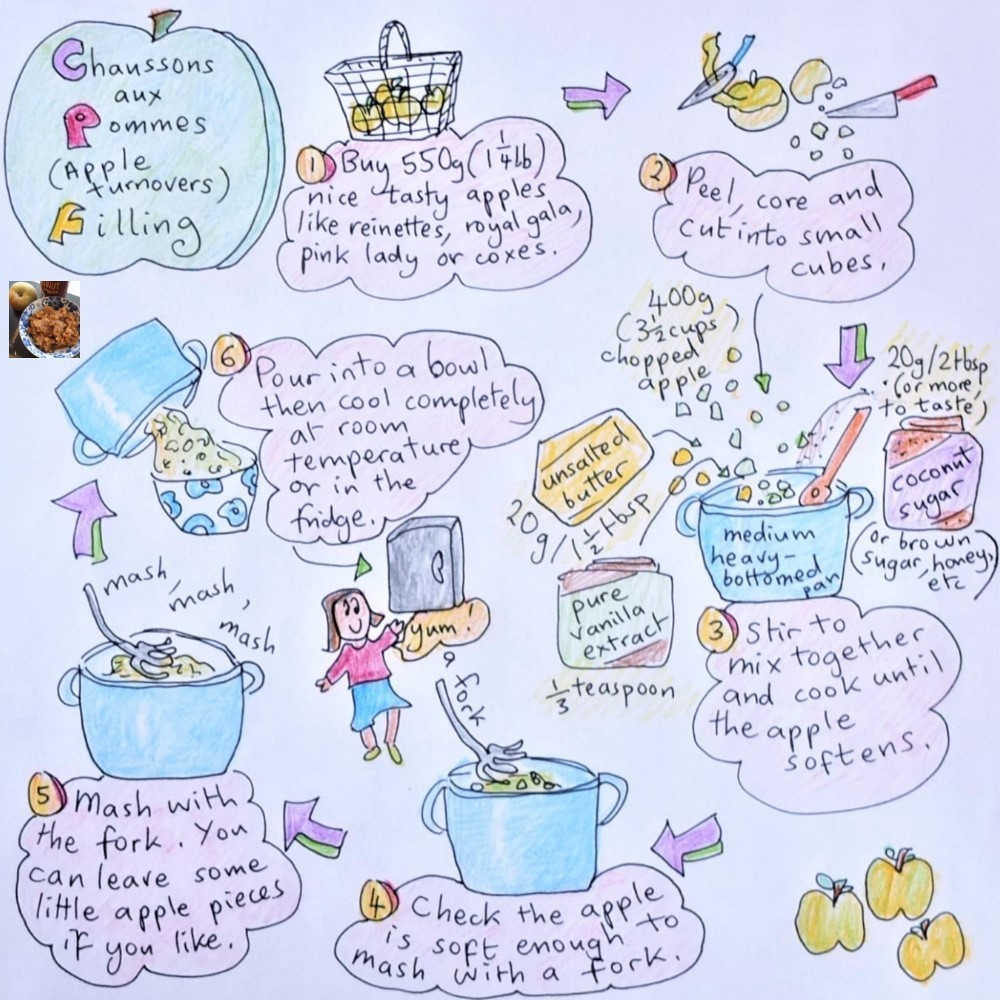 Chaussons
aux
Pommes
(Apple
turnovers)
Filling
1 Buy 550g (1 1/4 lb)
nice tasty apples
like reinettes, royal gala,
pink lady or coxes.
2 Peel, core and
cut into small
cubes.
400g
(3 1/2 cups)
chopped
apple
20g/2tbsp
(or more
to taste)
unsalted
butter
20
g/1 1/2 tbsp
coconut
sugar
(or brown
sugar, honey,
etc)
medium
heavy-
bottomed
pan
pure
vanilla
extract
1/3 teaspoon
3 Stir to
mix together
and cook until
the apple
softens.
a fork
4 Check the apple
is soft enough to
mash with a fork.
mash, mash,
mash
5 Mash with
the fork. You
can leave some
little apple pieces
if you like.
6 Pour into a bowl
then cool completely
at room
temperature
or in the
fridge.
yum!